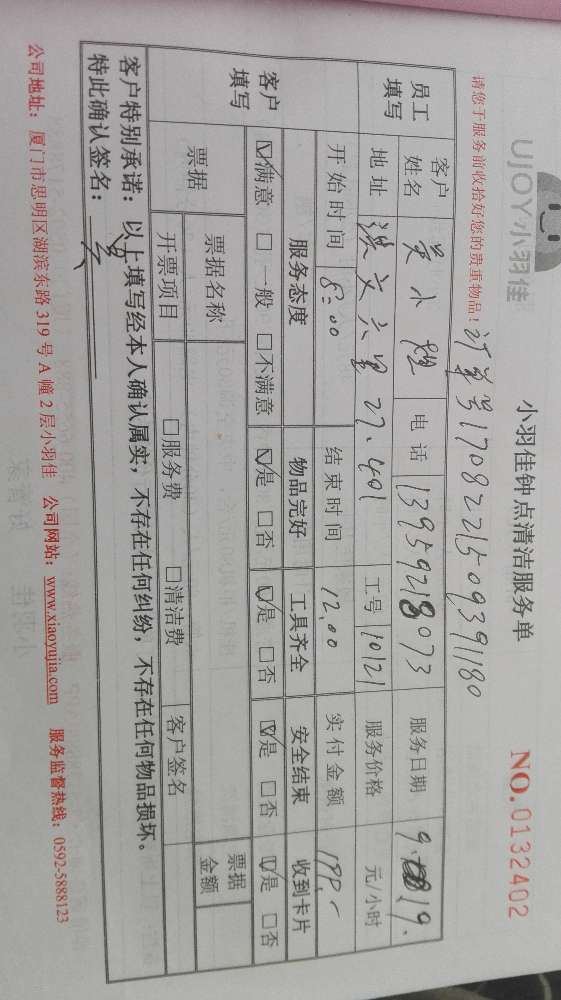 UJOY小羽佳
小羽佳钟点清洁服务单
NO.0132402
请您于服务前收拾好您的贵重物品!
订单号170822150939180
员工填写
客户姓名 吴小 电话 13959218073 服务日期 9. 19.
地址 洪文六里27.401 工号 10121 服务价格 元/小时
开始时间 8:00 结束时间 12.00 实付金额
客户填写
服务态度 物品完好 工具齐全 安全结束 收到卡片
☑满意 □一般 □不满意 ☑是 □否 ☑是 □否 ☑是 □否 ☑是 □否
票据 票据名称 票据金额
开票项目 □服务费 □清洁费 客户签名
客户特别承诺:以上填写经本人确认属实,不存在任何纠纷,不存在任何物品损坏。
特此确认签名:
公司地址:厦门市思明区湖滨东路319号A幢2层小羽佳 公司网站:www.xiaoyujia.com 服务监督热线:0592-5888123